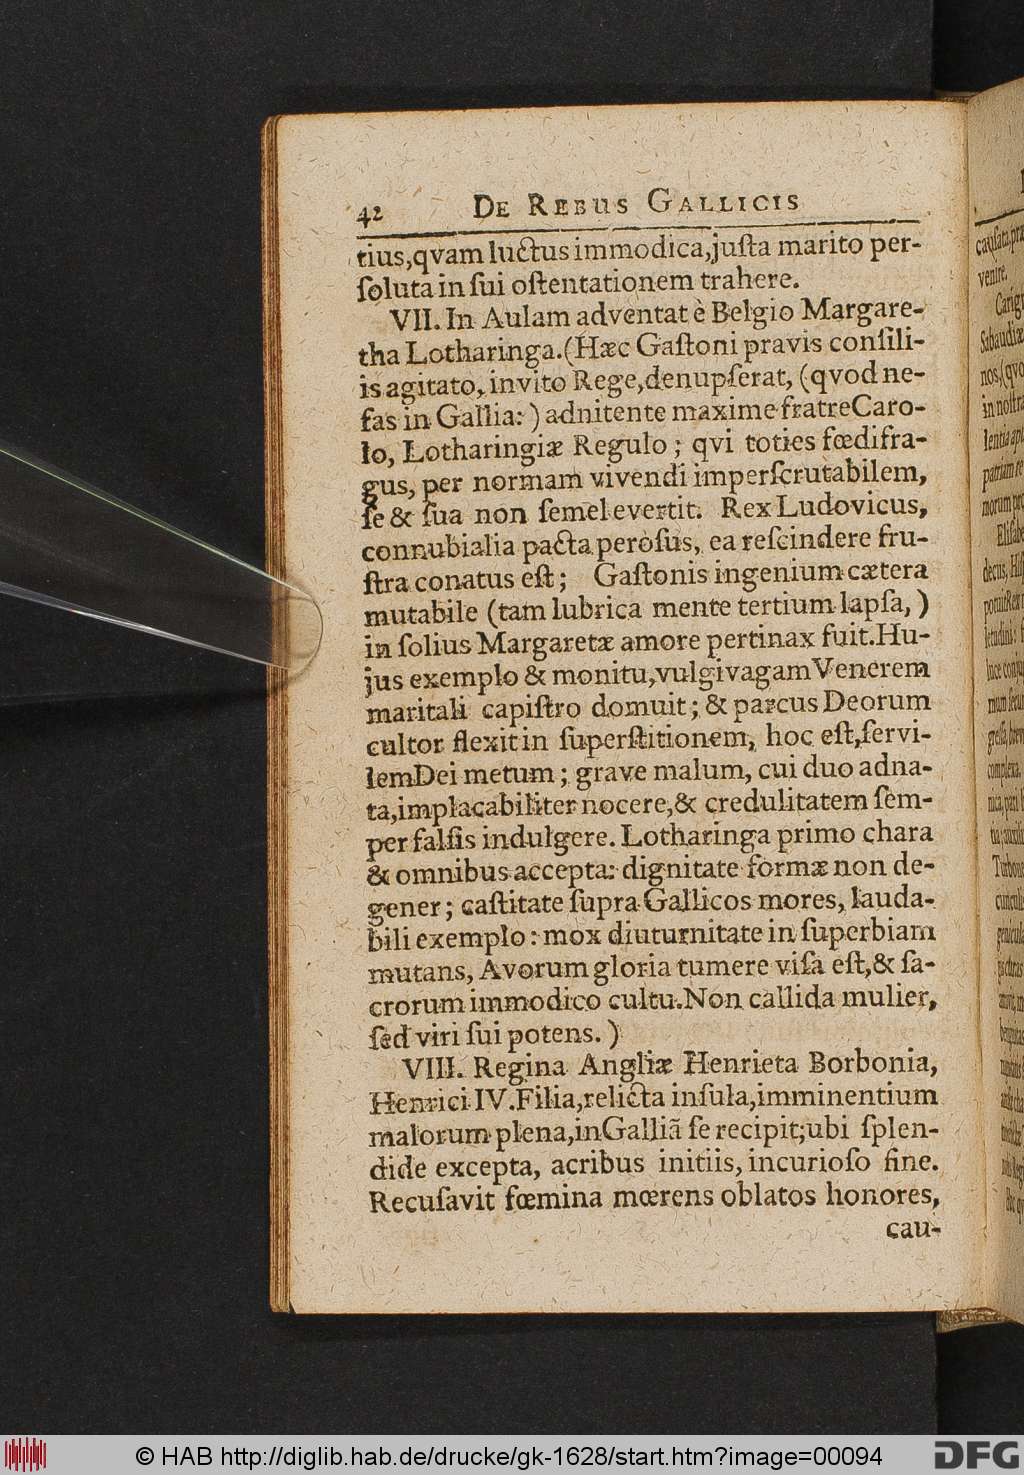 42 DE REBUS GALLICIS
tius,qvam luctus immodica,juſta marito per-
ſoluta in ſui oſtentationem trahere.
VII. In Aulam adventat è Belgio Margare-
tha Lotharinga.(Hæc Gaſtoni pravis conſili-
is agitato, invito Rege,denupſerat, (qvod ne-
fas in Gallia:) adnitente maxime fratre Caro-
lo, Lotharingiæ Regulo; qvi toties fœdifra-
gus, per normam vivendi imperſcrutabilem,
ſe & ſua non ſemel evertit. Rex Ludovicus,
connubialia pacta peròſus, ea reſcindere fru-
ſtra conatus eſt; Gaſtonis ingenium cætera
mutabile (tam lubrica mente tertium lapſa,)
in ſolius Margaretæ amore pertinax fuit.Hu-
jus exemplo & monitu,vulgivagam Venerem
maritali capiſtro domuit; & parcus Deorum
cultor flexit in ſuperſtitionem, hoc eſt,ſervi-
lem Dei metum; grave malum, cui duo adna-
ta,implacabiliter nocere,& credulitatem ſem-
per falſis indulgere. Lotharinga primo chara
& omnibus accepta: dignitate formæ non de-
gener; caſtitate ſupra Gallicos mores, lauda-
bili exemplo: mox diuturnitate in ſuperbiam
mutans, Avorum gloria tumere viſa eſt,& ſa-
crorum immodico cultu.Non callida mulier,
ſed viri ſui potens.)
VIII. Regina Angliæ Henrieta Borbonia,
Henrici IV.Filia,relicta inſula,imminentium
malorum plena,in Galliã ſe recipit;ubi ſplen-
dide excepta, acribus initiis, incurioſo fine.
Recuſavit fœmina mœrens oblatos honores,
cau-
venire.
Sabaudiæ
© HAB http://diglib.hab.de/drucke/gk-1628/start.htm?image=00094
DFG